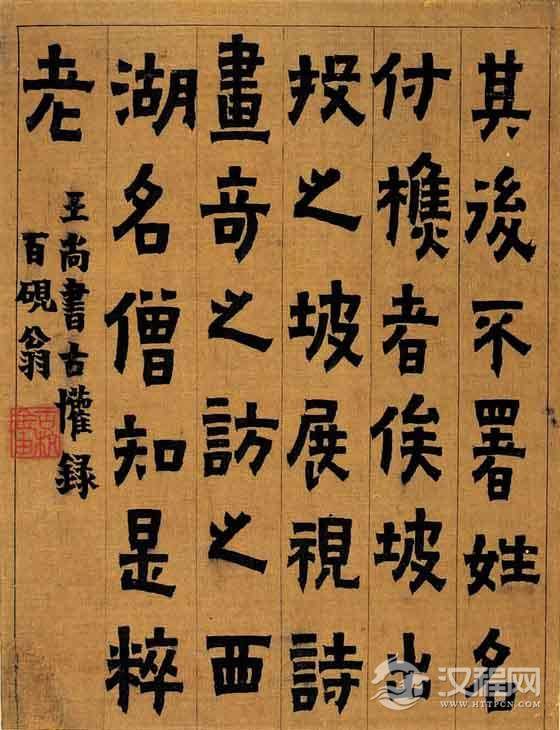 其後不署姓名
付樵者俟坡出
投之坡展視詩
畫奇之訪之西
湖名僧知是粹
老
王尚書古懽錄
百硯翁
汉程网
HTTPCN.COM